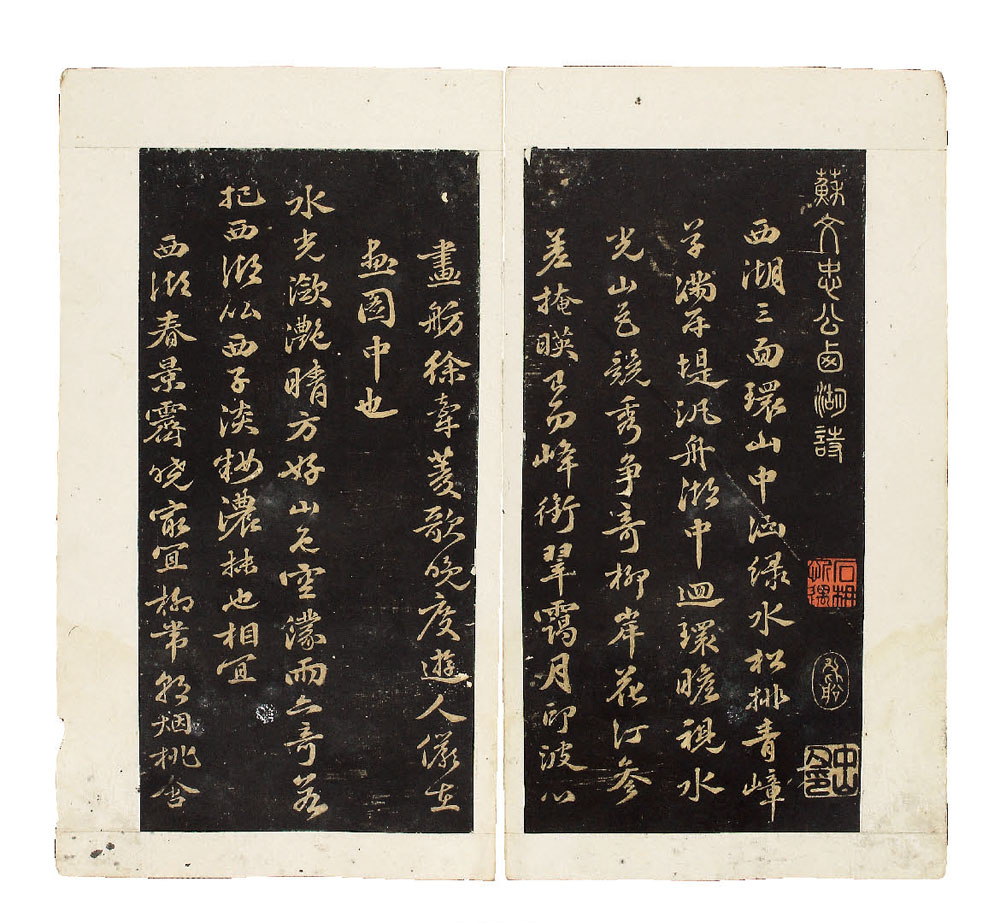 蘇文忠公西湖詩
西湖三面環山中涵綠水松排青嶂
草滿平堤汎舟湖中迴環瞻視水
光山色競秀爭奇柳岸花汀參
差掩暎 峰銜翠靄月印波心
畫舫徐牽菱歌晚度遊人儼在
畫圖中也
水光瀲灔晴方好山色空濛雨亦奇若
把西湖似西子淡妝濃抹也相宜
西湖春景霽曉最宜柳帶朝烟桃含